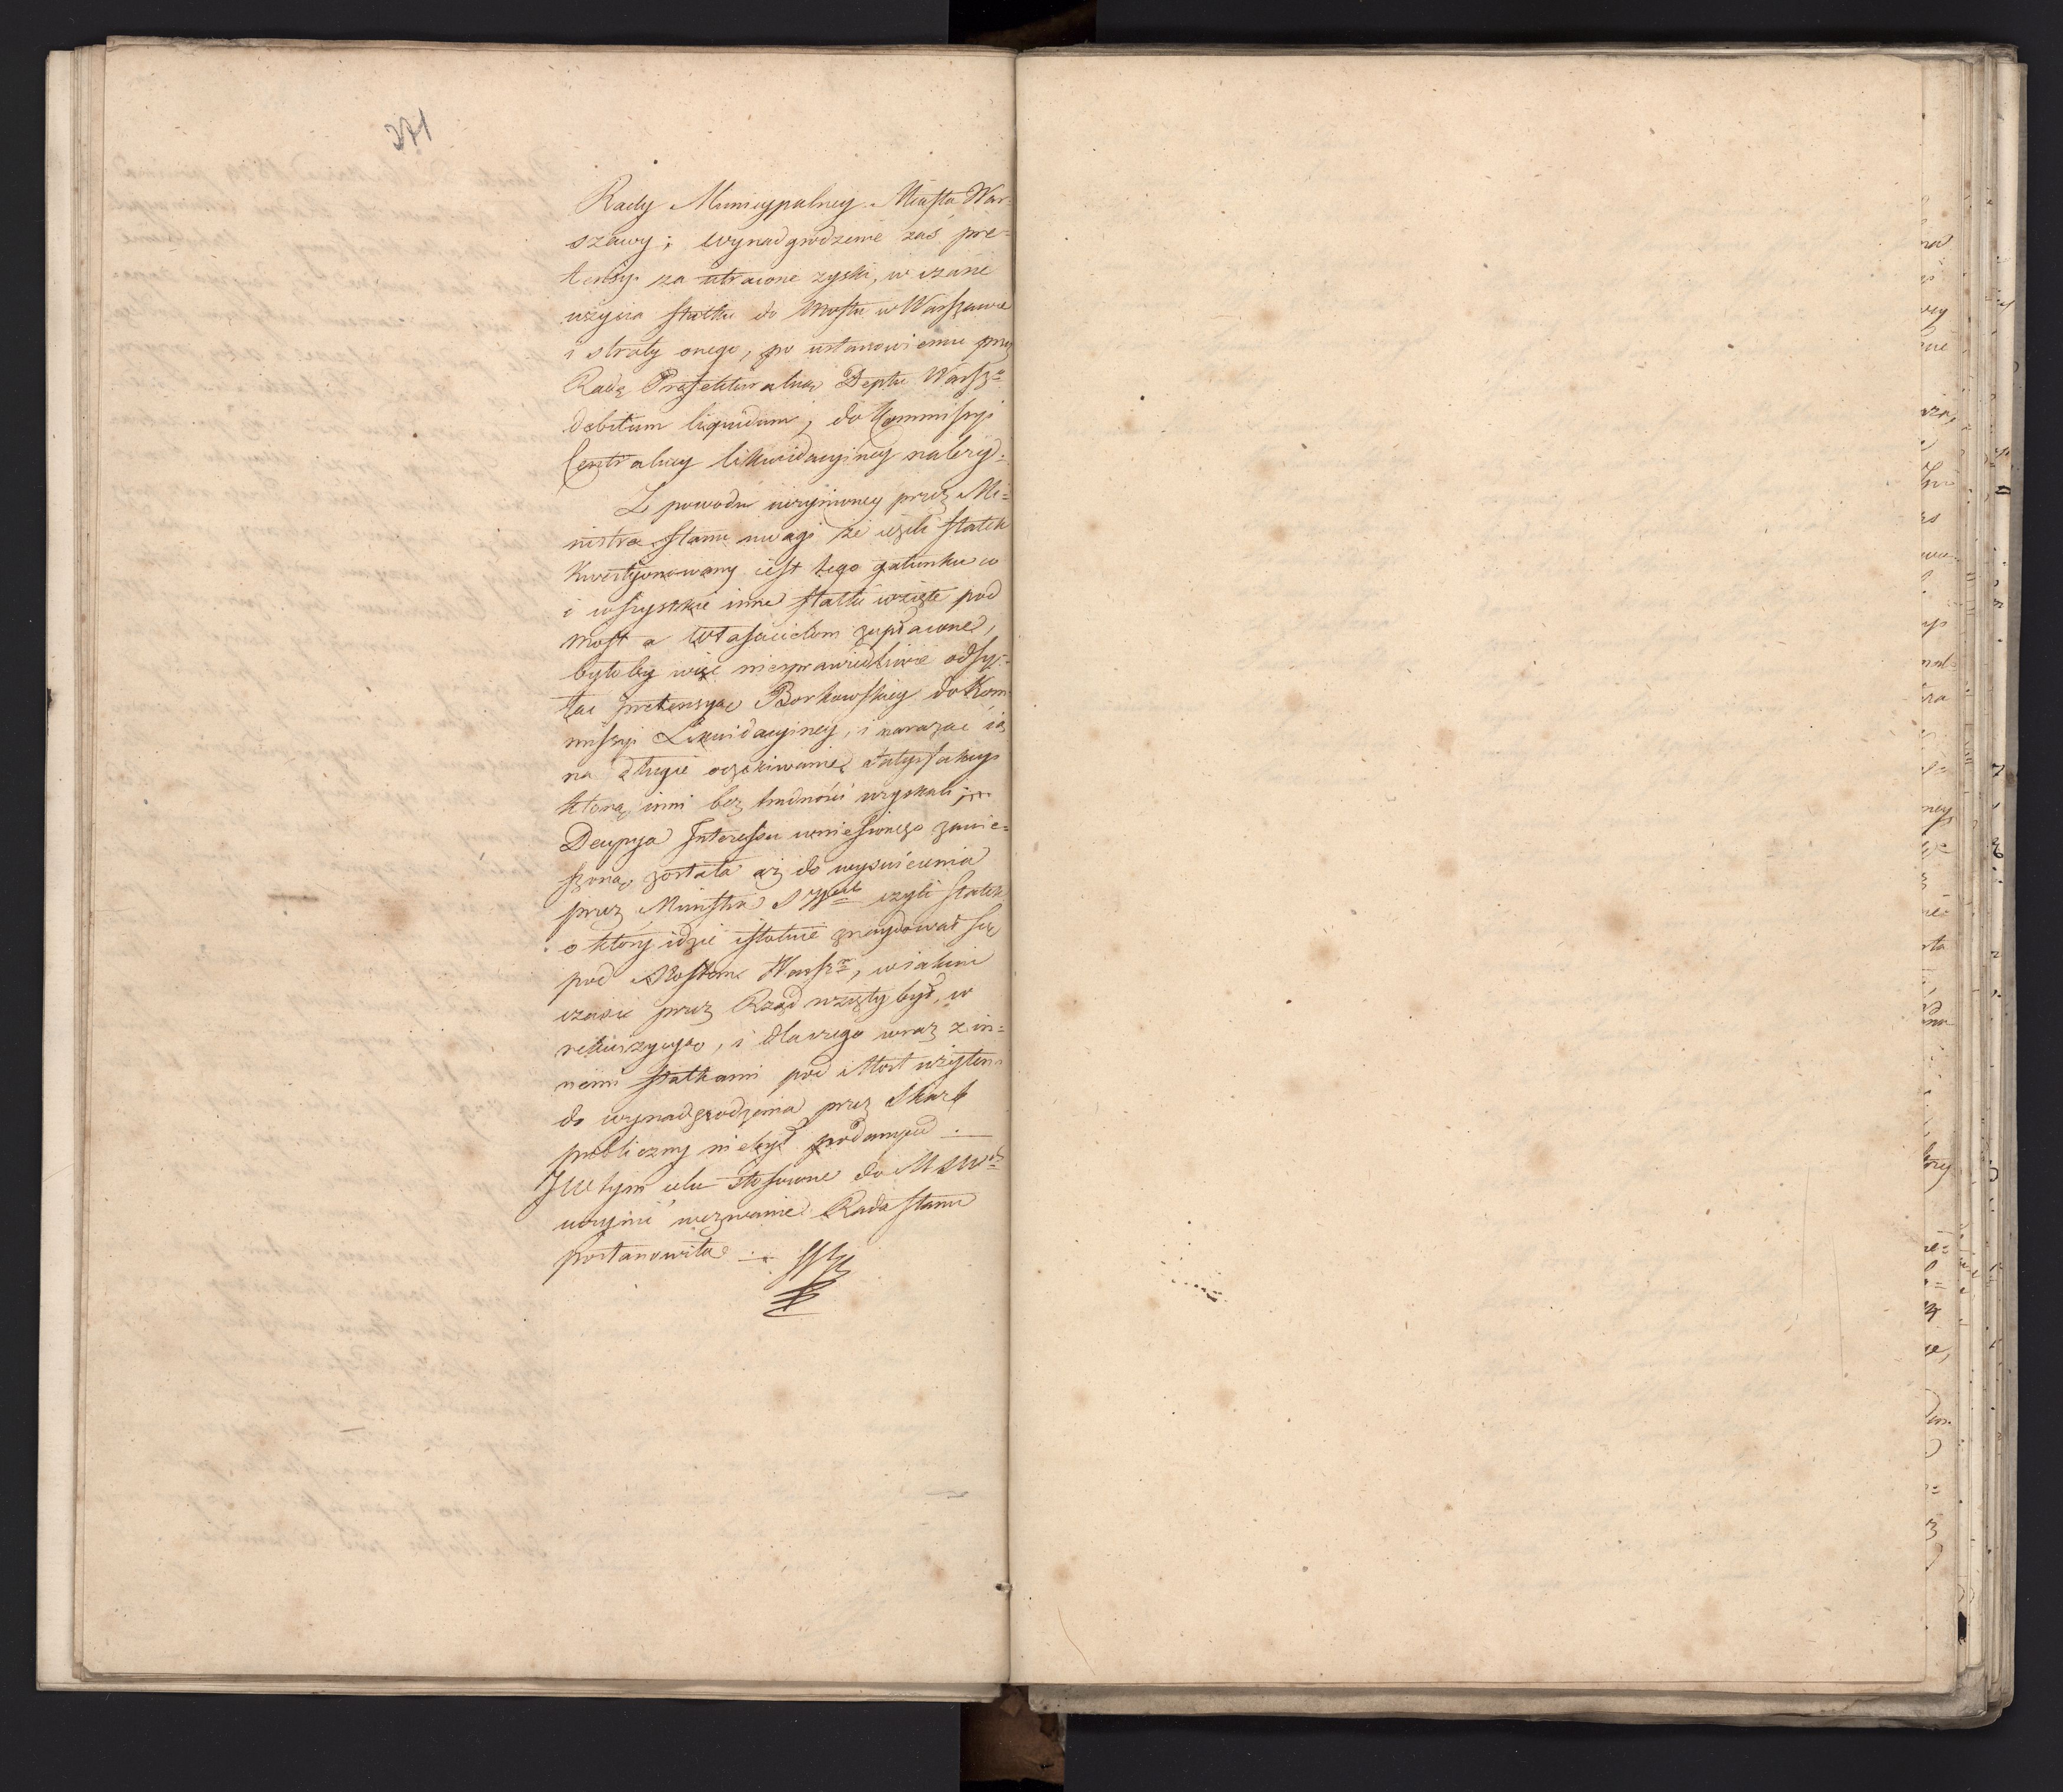 371
Rady Municypalney Miasta War-
szawy; wynadgrodzenie zaś pre-
tensyi za utracone zyski, w czasie
użycia statku do Mostu w Warszawie
i straty onego, po ustanowieniu przez
Radę Prefekturalną Deptu Warszo
debitum liquidum, do Kommissyi
Centralney likwidacyiney należy.
Z powodu uczynioney przez Mi-
nistra Stanu uwagi że ieżeli statek
kwestyonowany iest tego gatunku co
i wszystkie inne statki wzięte pod
most a właścicielom zapłacone,
byłoby więc niesprawiedliwie odsy-
łać pretensyą Borkowskiey do Kom-
missyi Likwidacyiney, i narażać ią
na długie oczekiwanie satysfakcyi
którą inni bez trudności uzyskali;
Decyzya Interessu wniesionego zawie-
szoną została aż do wyświecenia
przez Ministra S Wch czyli statek
o który idzie istotnie znaydował się
pod Mostem Warszm, w iakim
czasie przez Rząd wzięty był, w
rekwizycyą, i dlaczego wraz z in-
nemi statkami pod Most użytemi
do wynadgrodzenia przez Skarb
publiczny niebył podanym.
I w tym celu stosowne do M S Wch
uczynić wezwanie Rada Stanu
postanowiła.